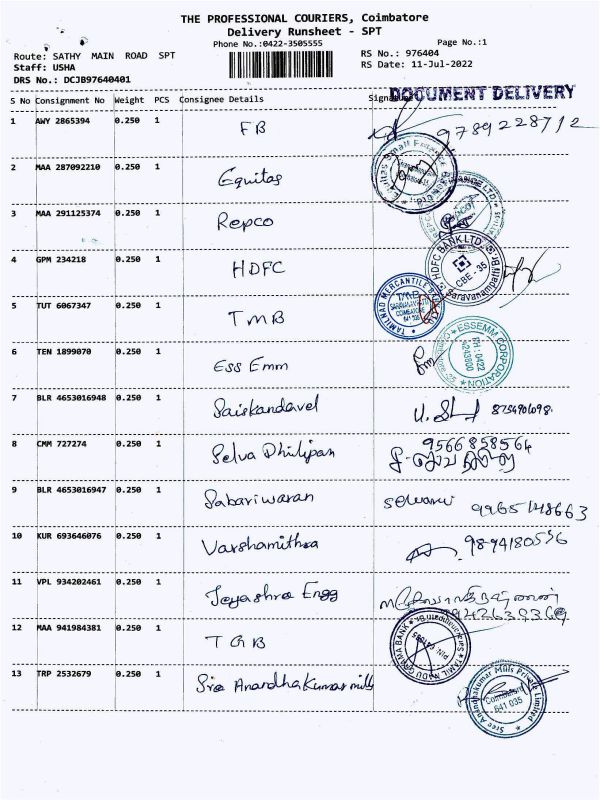 THE PROFESSIONAL COURIERS, Coimbatore
Delivery Runsheet - SPT
Phone No.:0422-3505555
Page No.:1
Route: SATHY MAIN ROAD SPT
RS No.: 976404
Staff: USHA
RS Date: 11-Jul-2022
DRS No.: DCJB97640401
DOCUMENT DELIVERY
S No Consignment No Weight PCS Consignee Details
1 AWY 2865394 0.250 1 FB 9789228712
2 MAA 287092210 0.250 1 Equitas
3 MAA 291125374 0.250 1 Repco
4 GPM 234218 0.250 1 HDFC
HDFC BANK LTD.
CBE - 35
Saravanampatti
5 TUT 6067347 0.250 1 TMB
TAMILNAD MERCANTILE
TMB
COIMBATORE
6 TEN 1899070 0.250 1 Ess Emm
ESSEMM CORPORATION
PH : 0422
7 BLR 4653016948 0.250 1 Saiskandavel
8 CMM 727274 0.250 1 Selva Dhilipan 9566858564
9 BLR 4653016947 0.250 1 Sabariwaran
10 KUR 693646076 0.250 1 Varshamithra
11 VPL 934202461 0.250 1 Jeyashree Engg
12 MAA 941984381 0.250 1 TGB
TAMIL NADU GRAMA BANK
13 TRP 2532679 0.250 1 Sree Anandhakumar mills
Sree Anandhakumar Mills Private Limited
Coimbatore
641 035